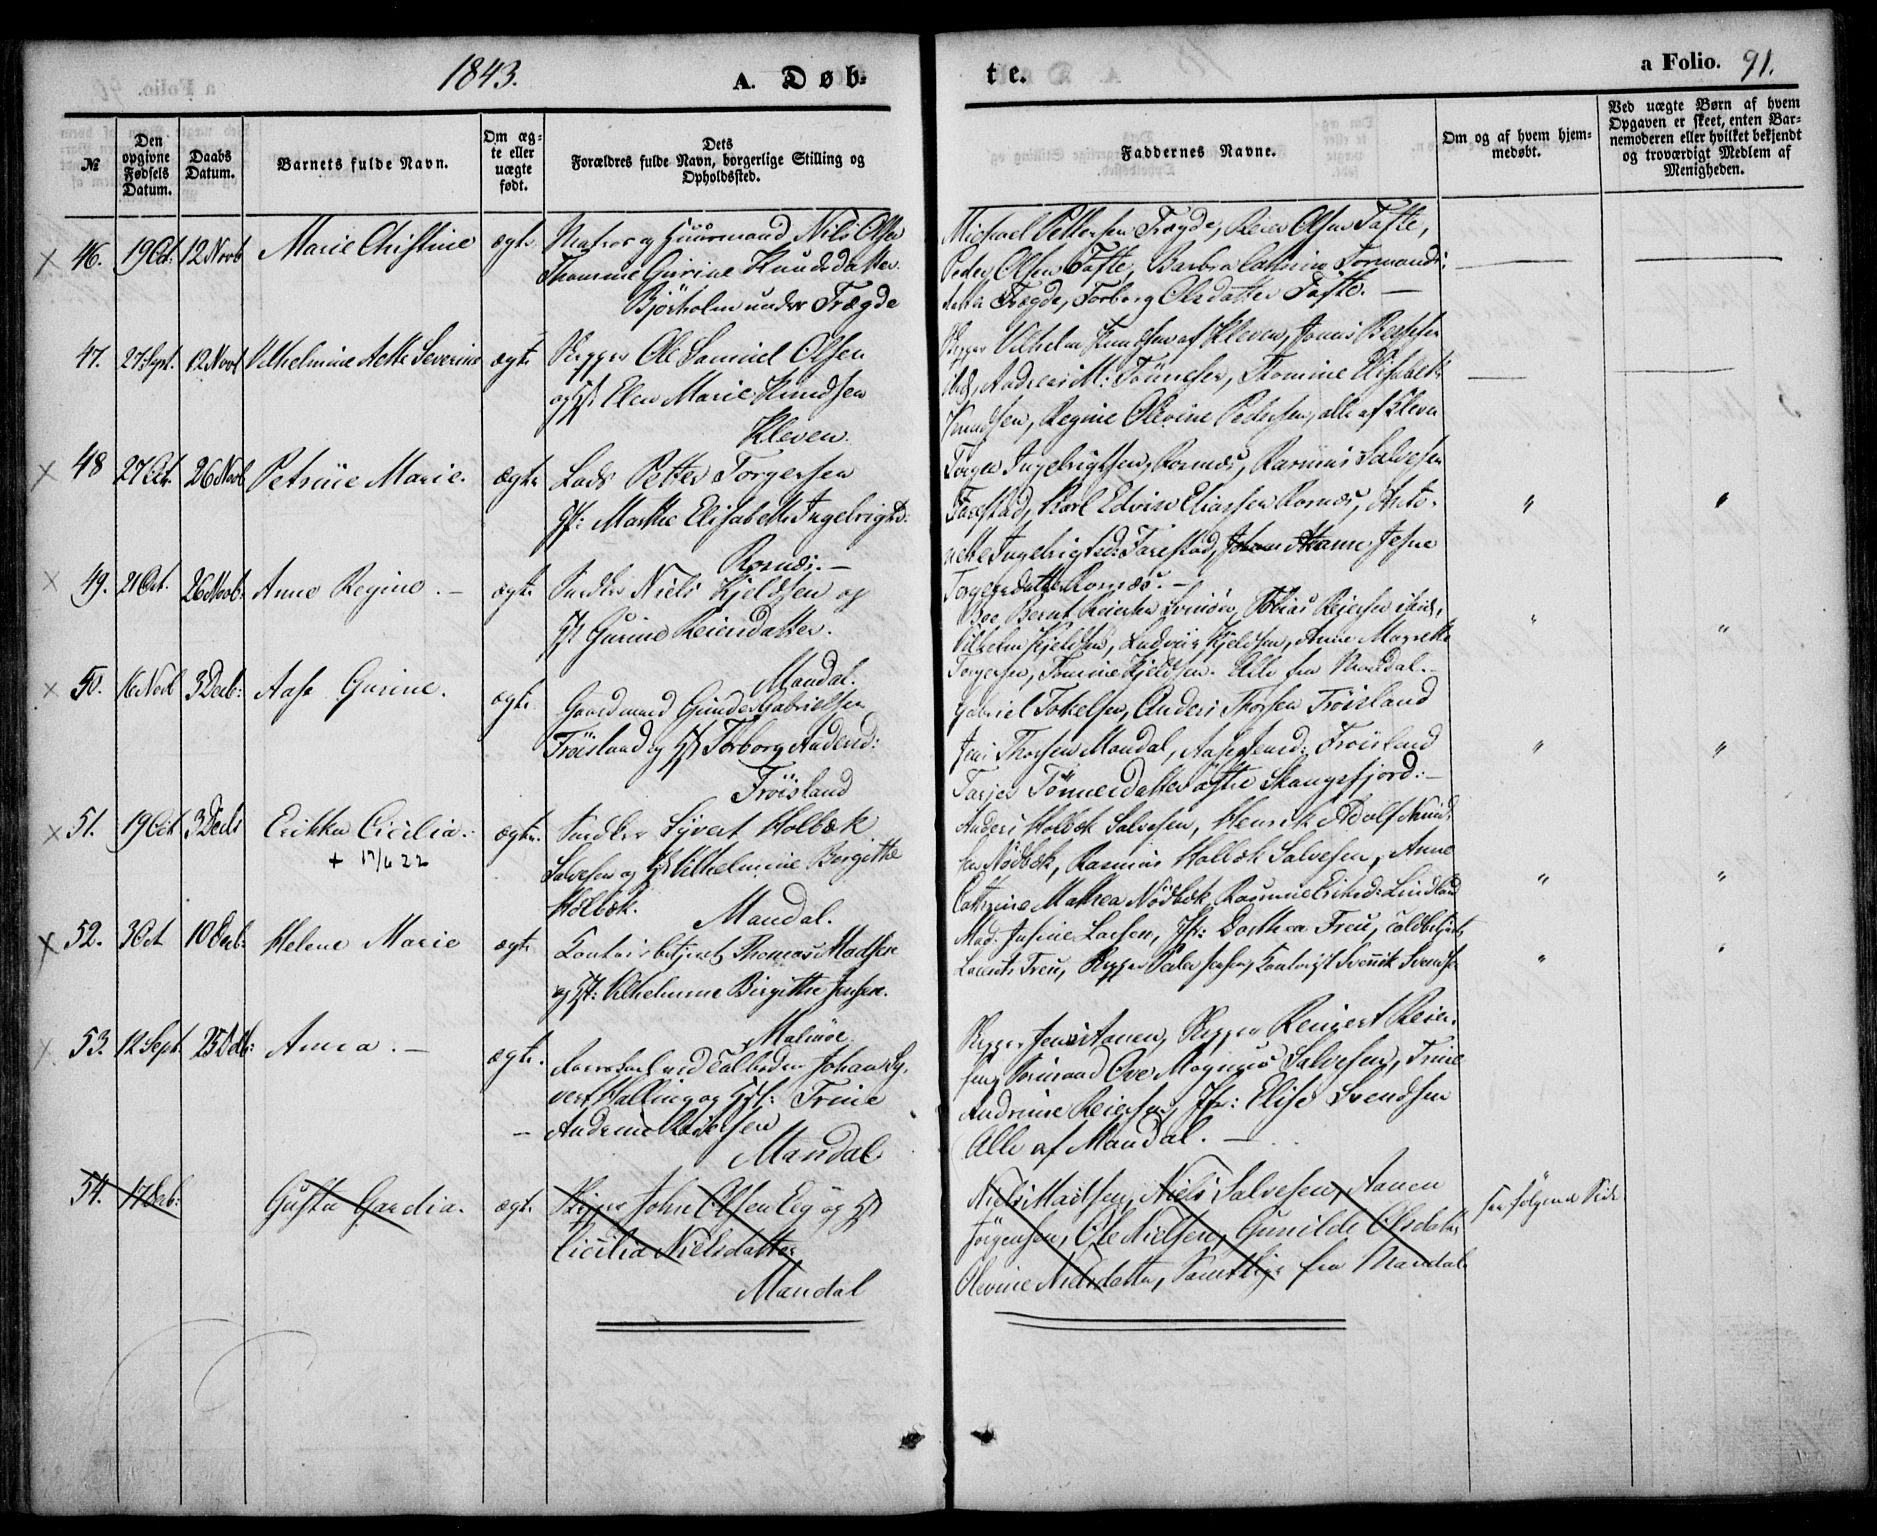 1843.
A. Døb-
te.
a Folio. 91.
№
Den opgivne Fødsels Datum.
Daabs Datum.
Barnets fulde Navn.
Om ægte eller uægte født.
Dets Forældres fulde Navn, borgerlige Stilling og Opholdssted.
Faddernes Navne.
Om og af hvem hjemmedøbt.
Ved uægte Børn af hvem Opgaven er skeet, enten Barnemoderen eller hvilket bekjendt og troværdigt Medlem af Menigheden.
46. 19 Oct. 12 Novb Marie Christine ægte
Matros og Huusmand Nils Olsen
Thomine Gurine Knudsdatter
Bjørholm under Trægde
Michael Pettersen Trægde, Reier Olsen Tofte,
Peder Olsen Tofte, Barbra Cathrine Tormands:
datter Trægde, Torborg Olsdatter Tofte. —
47. 27 Sept. 12 Novb Vilhelmine Aette Severine ægte
Skipper Ole Samuel Olsen
og H. Elen Marie Knudsen
Kleven.
Skipper Vilhelm Knudsen af Kleven,
Andreas M: Tönnesen, Thomine Elisabeth
Knudsen, Regine Olevine Pedersen, alle af Kleven
48 27 Oct. 26 Novb Petrine Marie. ægte
Lods Petter Torgersen
H: Marthe Elisabeth Ingebrigtsd:
Rosnæs. —
Torger Ingebrigtsen Rosnæs, Rasmus Salvesen
Farestad, Karl Edvin Eliassen Rosnæs, Anto-
nette Ingebrigtsd: Farestad,
Torgersdatter Rosnæs. —
49. 21 Oct. 26 Novb: Anne Regine. — ægte
Snedker Niels Kjeldsen og
H Gurine Reiersdatter.
Mandal.
Bernt Reiersen Svinöen, Tobias Reiersen
Vilhelm Kjeldsen, Ludvig Kjeldsen, Anne Marethe
Torgersen, Tomine Kjeldsen. Alle fra Mandal. —
50. 16 Novb 3 Decb: Aase Gurine. ægte
Gaardmand Gunder Gabrielsen
Fröisland og H Torborg Andersd:
Fröisland
Gabriel Tokelsen, Anders Thorsen Fröisland
Jens Thorsen Mandal, Fröisland
Tönnesdatter Skaugsfjord: —
51. 19 Oct 3 Decb Erikka Cicilia. ægte
+ 17/6 22
Snedker Syvert Holbæk
Salvesen og H Vilhelmine Birgitte
Holbæk.
Mandal.
Anders Holbæk Salvesen, Henrik Adolf Knud-
sen Nödbæk, Rasmus Holbæk Salvesen, Anne
Cathrine Mathea Nödbæk, Rasmine Eriksd: Lindland
52. 3 Oct 10 Decb: Helene Marie ægte
Contoirbetjent Thomas Madsen
og H: Vilhelmine Birgitte Jensen.
Malmöe
Mad. Josine Larsen, Jfr: Dorthea Freu, Toldbetjent
Laurits Freu, Skipper Peder Jensen, Contorist Svenning Svendsen
53. 12 Sept 25 Decb: Anna. — ægte.
ved Toldboden Johan Sy-
vert Salling og H: Trine
Andrine Reiersen
Mandal.
Skipper Jens Aanen, Skipper Reinert Reier-
sen, Ove Magnus Salvesen, Trine
Andrine Reiersen, Jfr: Elise Svendsen
Alle af Mandal. —
54. 17 Decb: Gusta Gardia. ægte
Skipper John Olsen Eeg og H
Cicilia Nielsdatter
Mandal
Niels Madsen, Niels Salvesen, Aanen
Jörgensen, Ole Nielsen, Gunilde Olsdatter
Olevine Nielsdatter, Samtlige fra Mandal.
see følgende Side